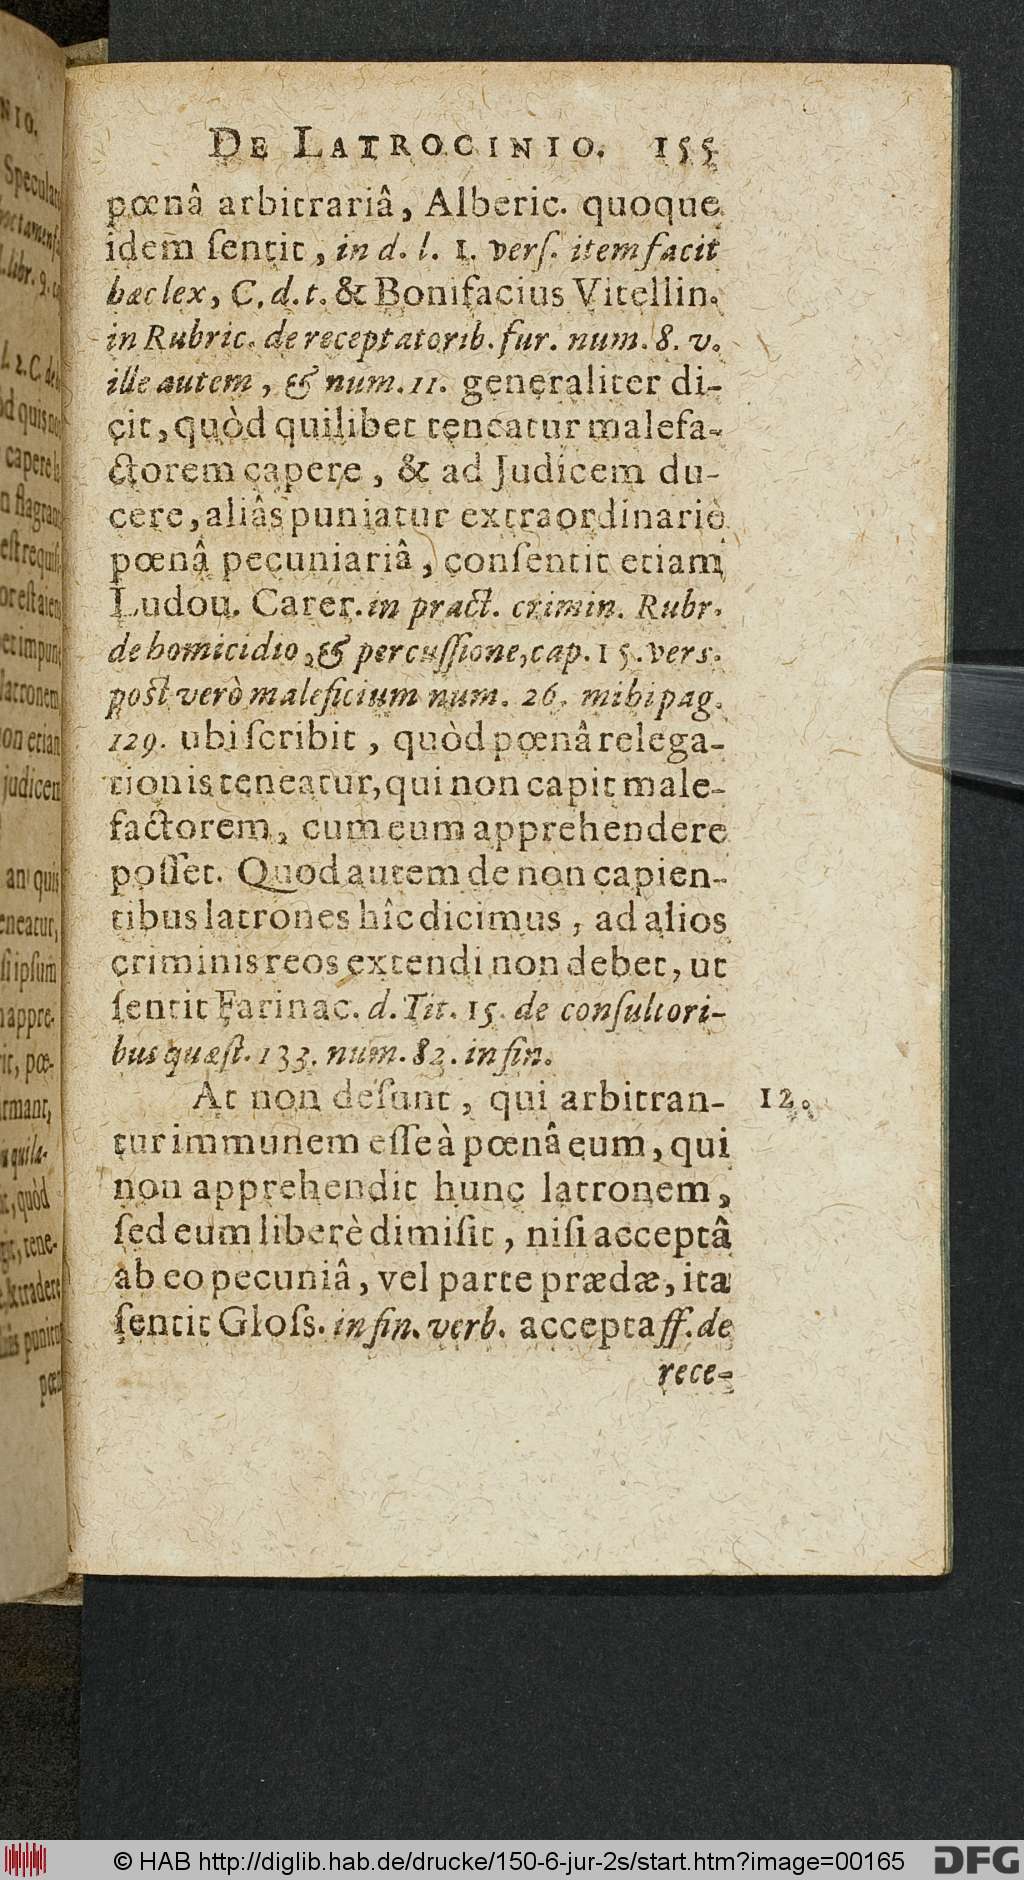 DE LATROCINIO. 155
pœnâ arbitrariâ, Alberic. quoque
idem ſentit, in d. l. 1. verſ. item facit
hæc lex, C. d. t. & Bonifacius Vitellin.
in Rubric. de receptatorib. fur. num. 8. v.
ille autem, & num. 11. generaliter di-
cit, quòd quilibet teneatur malefa-
ctorem capere, & ad Judicem du-
cere, aliâs puniatur extraordinariè
pœnâ pecuniariâ, conſentit etiam
Ludou. Carer. in pract. crimin. Rubr.
de homicidio, & percuſſione, cap. 15. vers.
poſt verò maleficium num. 26. mihi pag.
129. ubi ſcribit, quòd pœnâ relega-
tionis teneatur, qui non capit male-
factorem, cum eum apprehendere
poſſet. Quod autem de non capien-
tibus latrones hîc dicimus, ad alios
criminis reos extendi non debet, ut
ſentit Farinac. d. Tit. 15. de conſultori-
bus quæſt. 133. num. 82. in fin.
At non deſunt, qui arbitran- 12.
tur immunem eſſe à pœnâ eum, qui
non apprehendit hunc latronem,
ſed eum liberè dimiſit, niſi acceptâ
ab eo pecuniâ, vel parte prædæ, ita
ſentit Gloſs. in fin. verb. accepta ff. de
rece-
© HAB http://diglib.hab.de/drucke/150-6-jur-2s/start.htm?image=00165
DFG